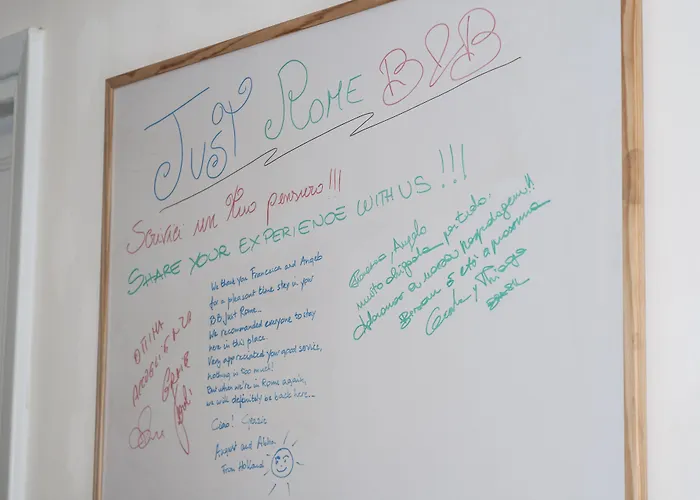 Just Rome B&B
Scrivici un tuo pensiero!!!
SHARE YOUR EXPERIENCE WITH US!!!
We thank you Francesca and Angelo
for a pleasant time stay in your
BB Just Rome...
We recommanded everyone to stay
here in this place.
Very appreciated your good service,
nothing is too much!
But when we're in Rome again,
we will definitely be back here...
Ciao! Grazie
August and
From Holland
Angelo
muito obrigada por tudo.
a nossa hospedagem!!
e até a próxima
y Thiago
ΟΠΙΝΑ